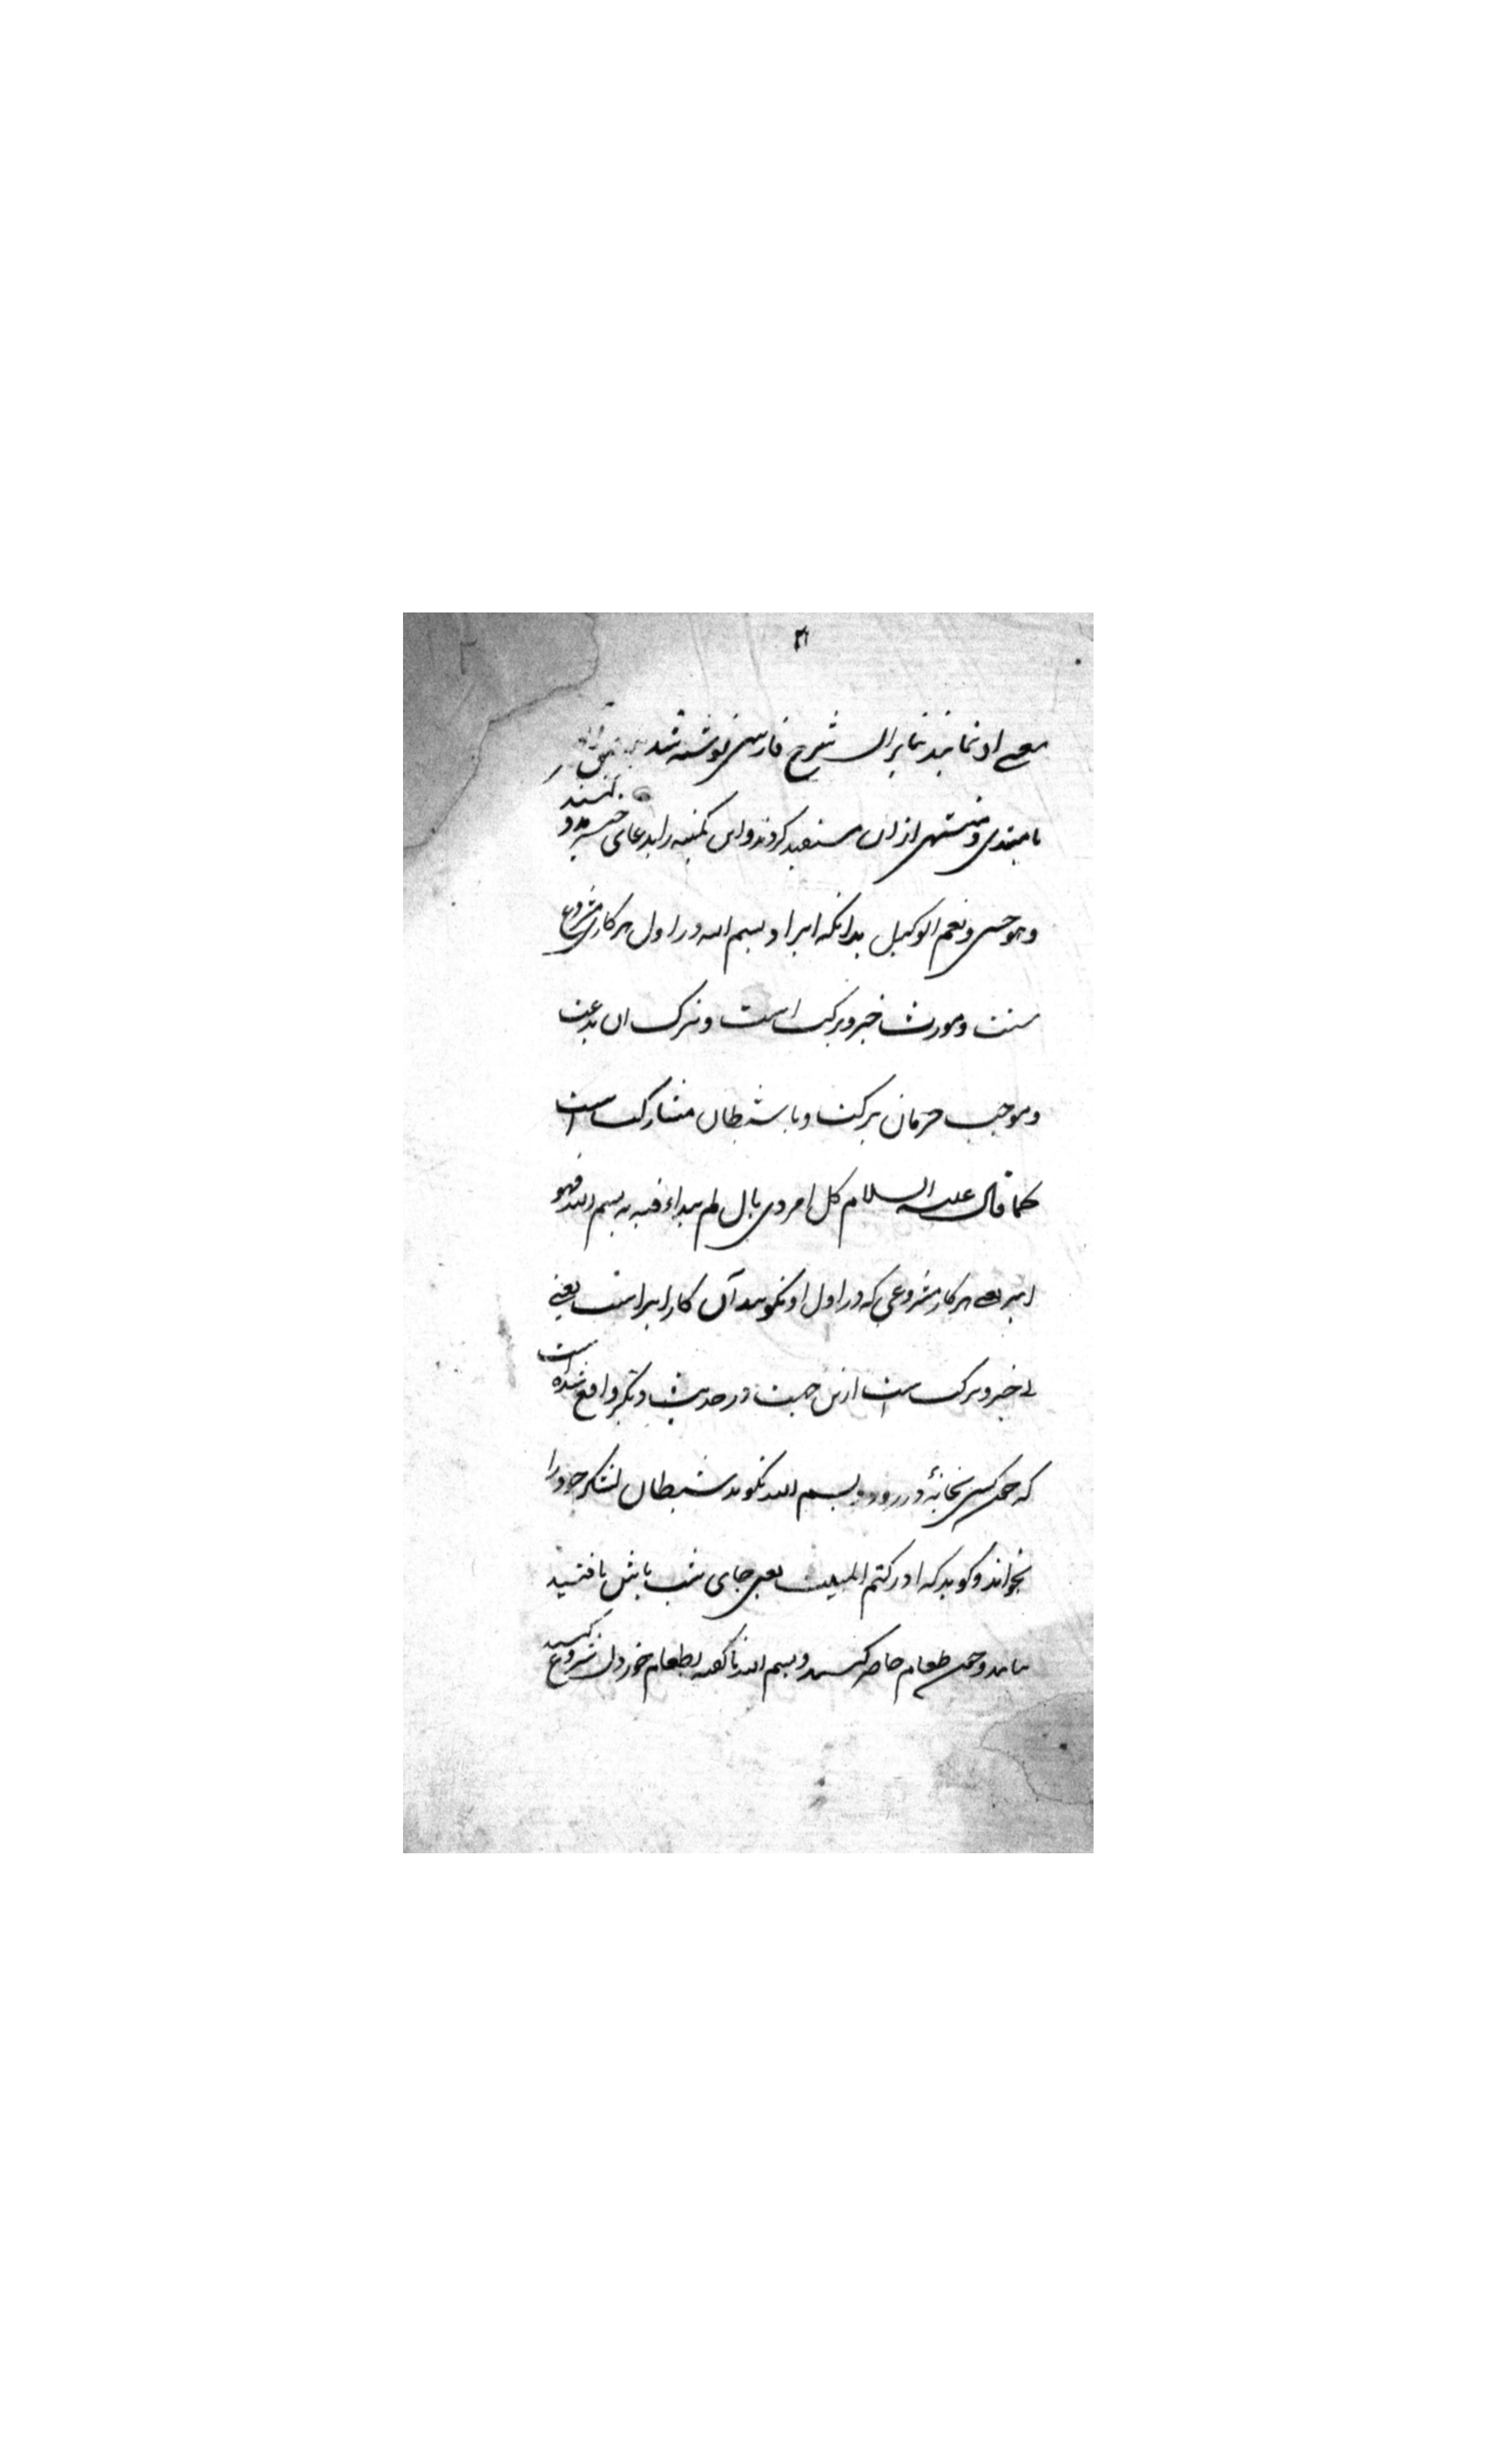 سعی او نمایند بنابران شرح فارسی نوشته شد
تا مبتدی و منتهی ازان مستفید کردند و این کمینه را بدعای خیر مدد
نمایند
و هو حسبی و نعم الوکیل بدانکه ایراد بسم الله در اول هر کار مشروع
سنت و مورث خیر و برکت است و ترک ان بدعت
و موجب حرمان برکت و با شیطان مشارکت است
کما قال علیه السلام کل امر ذی بال لم یبداء فیه به بسم الله فهو
ابتر یعنی هر کار مشروعی که در اول او نکویند آن کار ابتر است یعنی
بی خیر و برکت است ازین جهت در حدیث دیکر واقع شده است
که چون کسی بخانهٔ در رود و بسم الله نکوید شیطان لشکر خود را
بخواند و کوید که ادرکتم المبیت یعنی جای شب باش یافتید
بیایید و چون طعام حاضر کنند و بسم الله ناکفته بطعام خوردن شروع کنند